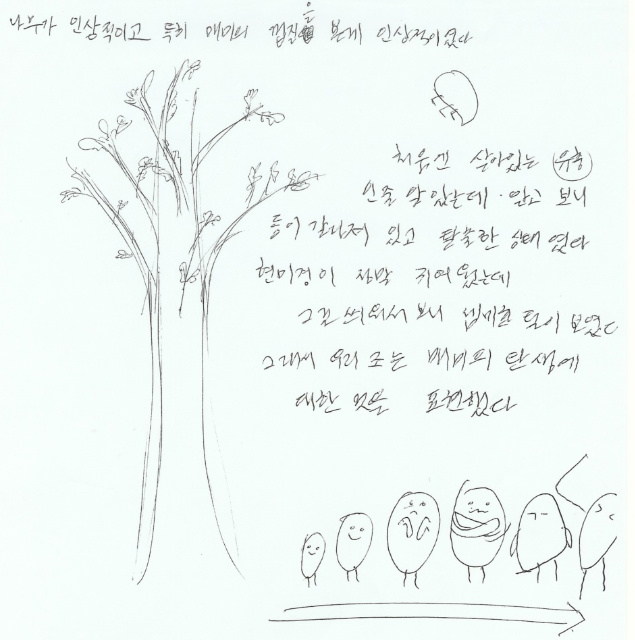 나무가 인상적이고 특히 매미의 껍질을 본게 인상적이였다
처음엔 살아있는 유충
인줄 알았는데. 알고 보니
등이 갈라져 있고 탈출한 상태 였다
현미경이 자막 지여 왔는데
그걸 보니 섬미한 털이 보였다
그래서 우리 조는 탄생에
대한 것을 표현했다